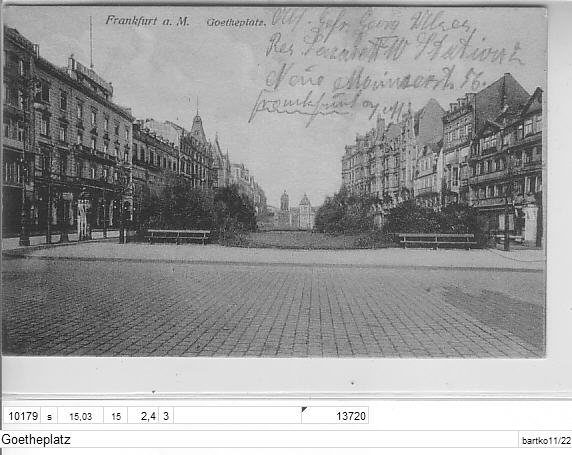 Frankfurt a. M. Goetheplatz.
Gefr. Georg
Res Lazarett IV
Neue Mainzerstr 56.
Frankfurt a/M.
10179 s 15,03 15 2,4 3 13720
Goetheplatz bartko11/22